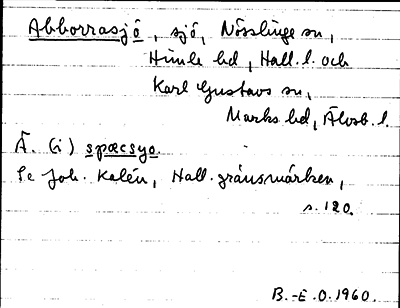 Abborrasjö, sjö, Nösslinge sn,
Himle hd, Hall. l. och
Karl Gustavs sn,
Marks hd, Älvsb. l.
Ä. (i) spæcsyo.
Se Joh. Kalén, Hall. gränsmärken,
s. 120.
B.-E.O. 1960.